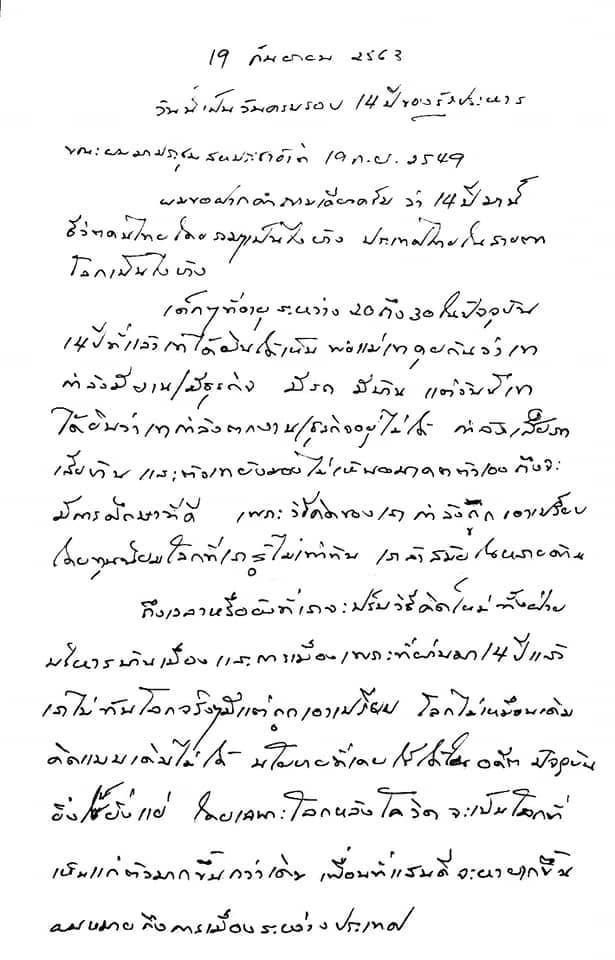 19 กันยายน 2563
วันนี้เป็นวันครบรอบ 14 ปีของรัฐประหาร
ขณะผมมาประชุมสหประชาชาติ 19 ก.ย. 2549
ผมขอฝากคำถามเดียวครับ ว่า 14 ปีมานี้
ชีวิตคนไทยโดยรวมๆเป็นไงบ้าง ประเทศไทยในสายตา
โลกเป็นไงบ้าง
เด็กๆที่อายุระหว่าง 20 ถึง 30 ในปัจจุบัน
14 ปีที่แล้วเขาได้ยินได้เห็น พ่อแม่เขาคุยกันว่าเขา
กำลังมีงาน/มีธุรกิจ มีรถ มีบ้าน แต่วันนี้เขา
ได้ยินว่าเขากำลังตกงาน/ธุรกิจอยู่ไม่ได้ กำลังเสียรถ
เสียบ้าน และตัวเขายังมองไม่เห็นอนาคตตัวเอง ถึงจะ
มีการศึกษาที่ดี เพราะวิธีคิดของเรา กำลังถูกเอาเปรียบ
โดยทุนนิยมโลกที่เรารู้ไม่เท่าทัน เราล้าสมัยในหลายด้าน
ถึงเวลาหรือยังที่เราจะปรับวิธีคิดใหม่ ทั้งฝ่าย
บริหารบ้านเมือง และการเมือง เพราะที่ผ่านมา 14 ปีแล้ว
เราไม่ทันโลกจริงๆมีแต่ถูกเอาเปรียบ โลกไม่เหมือนเดิม
คิดแบบเดิมไม่ได้ นโยบายที่เคยใช้ได้ในอดีต ปัจจุบัน
ยิ่งใช้ยิ่งแย่ โดยเฉพาะโลกหลังโควิด จะเป็นโลกที่
เห็นแก่ตัวมากขึ้นกว่าเดิม เพื่อนที่แสนดีจะหายากขึ้น
ผมหมายถึงการเมืองระหว่างประเทศ